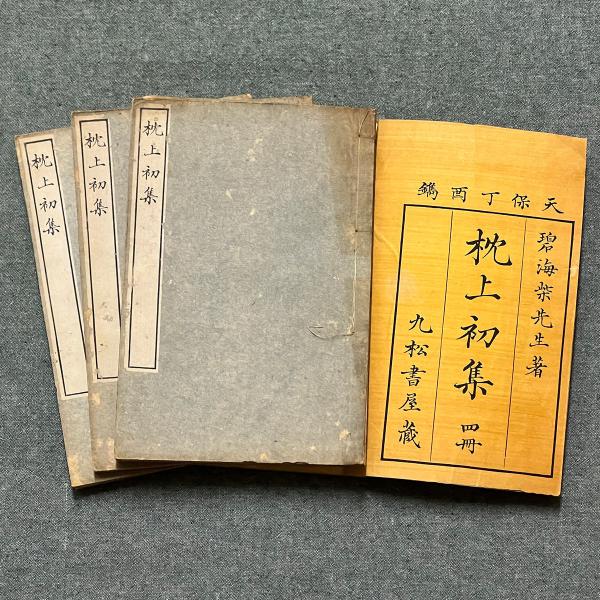 枕上初集
枕上初集
枕上初集
天保丁酉鐫
碧海柴先生著
枕上初集 四冊
九松書屋藏